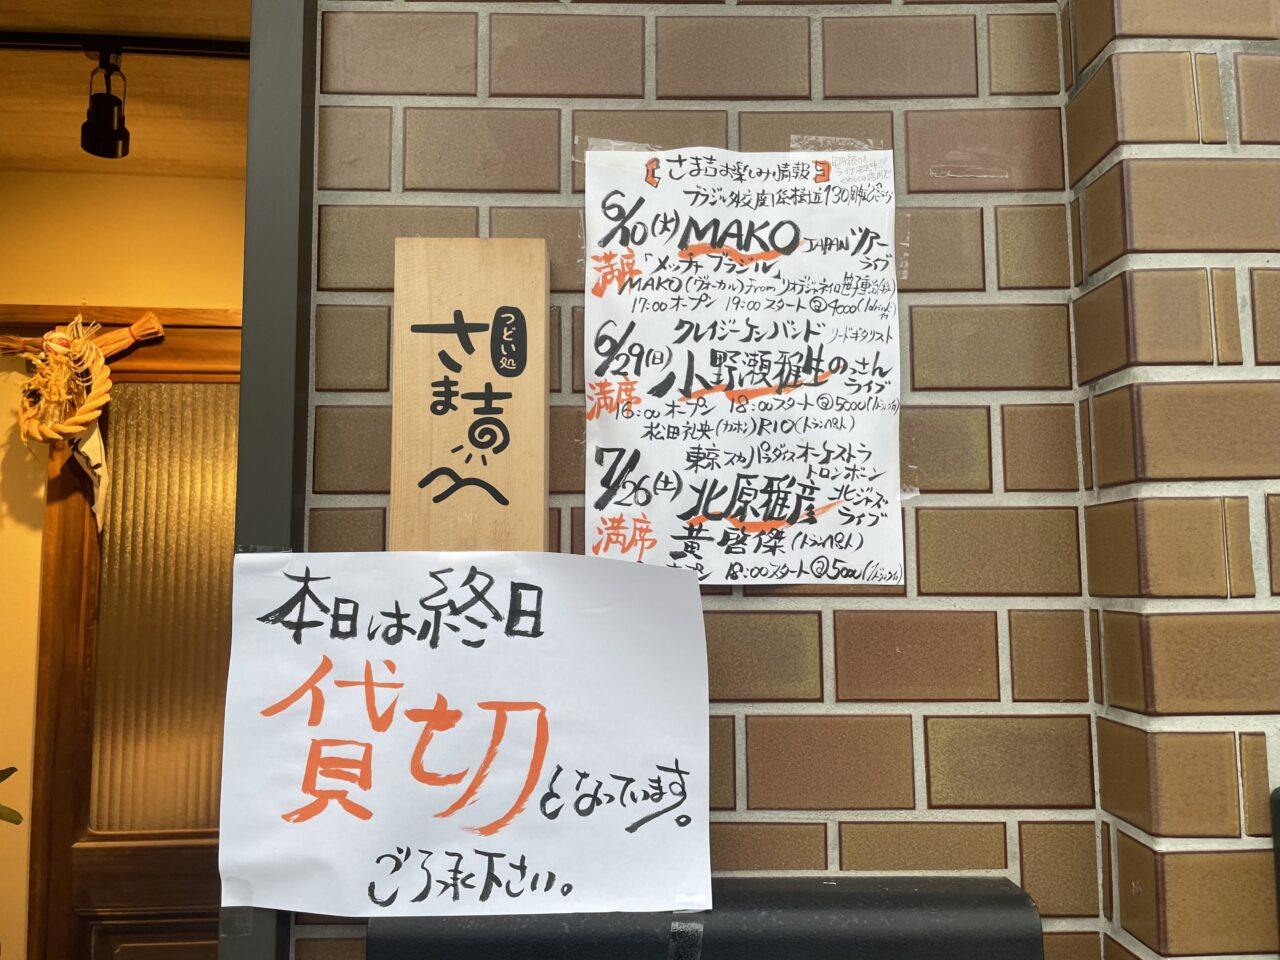 さま吉お楽しみ情報
ブラジル外交関係樹立130周年
6/10(火) MAKO JAPANツアー
ライブ
満席
「メッチャブラジル」
MAKO(ヴォーカル)from リオデジャネイロ
17:00オープン 19:00スタート@4000(1drink
6/29(日)
クレイジーケンバンド リードギタリスト
小野瀬雅生のっさん
ライブ
満席
16:00オープン 18:00スタート@5000(1ドリンク
松田礼央(カホン) RIO(トランペット)
7/26(土)
東京スカパラダイスオーケストラ
トロンボーン
北原雅彦 北ジャズ
ライブ
満席
黄啓傑(トランペット)
オープン 18:00スタート@5000(1ドリンク
つどい処
さま吉
本日は終日
貸切となっています。
ご了承下さい。